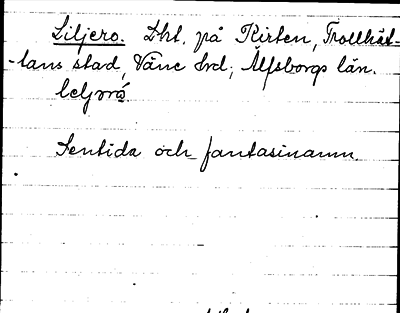 Liljero. Lht. på Kirten, Trollhät-
-tans stad, Väne hrd; Älfsborgs län.
leljorå.
Sentida och fantasinamn.